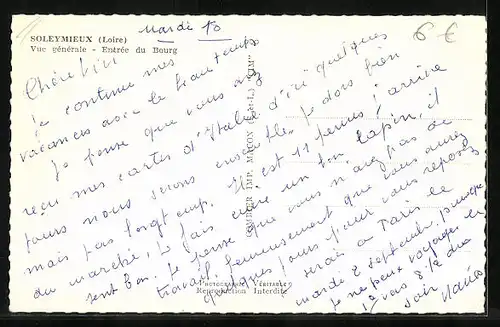 SOLEYMIEUX (Loire)
Vue générale - Entrée du Bourg
Mardi 10
6 €
je continue mes
vacances avec le beau temps
Je pense que vous avez
reçu mes cartes d'Italie d'ici quelques
jours nous serons Je dors bien
mais pas longtemps. Il est 11 heures j'arrive
du marché, je fais cuire un bon lapin, il
sent bon. Je pense que vous n'avez pas de
travail, heureusement que vous aurez
quelques jours pour vous reposer
serai à Paris le
mardi 8 septembre, puisque
je ne peux voyager
soir
COMBIER IMP. MACON (S.-&-L.) "CIM"
PHOTOGRAPHIE VÉRITABLE
Reproduction Interdite